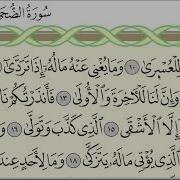 سُورَةُ الضُّحَى
لِلْعُسْرَىٰ ١٠ وَمَا يُغْنِي عَنْهُ مَالُهُ إِذَا تَرَدَّىٰ
وَإِنَّ لَنَا لَلْآخِرَةَ وَالْأُولَىٰ ١٣ فَأَنذَرْتُكُمْ نَا
إِلَّا الْأَشْقَى ١٥ الَّذِي كَذَّبَ وَتَوَلَّىٰ
الَّذِي يُؤْتِي مَالَهُ يَتَزَكَّىٰ ١٨ وَمَا لِأَحَدٍ عِندَ